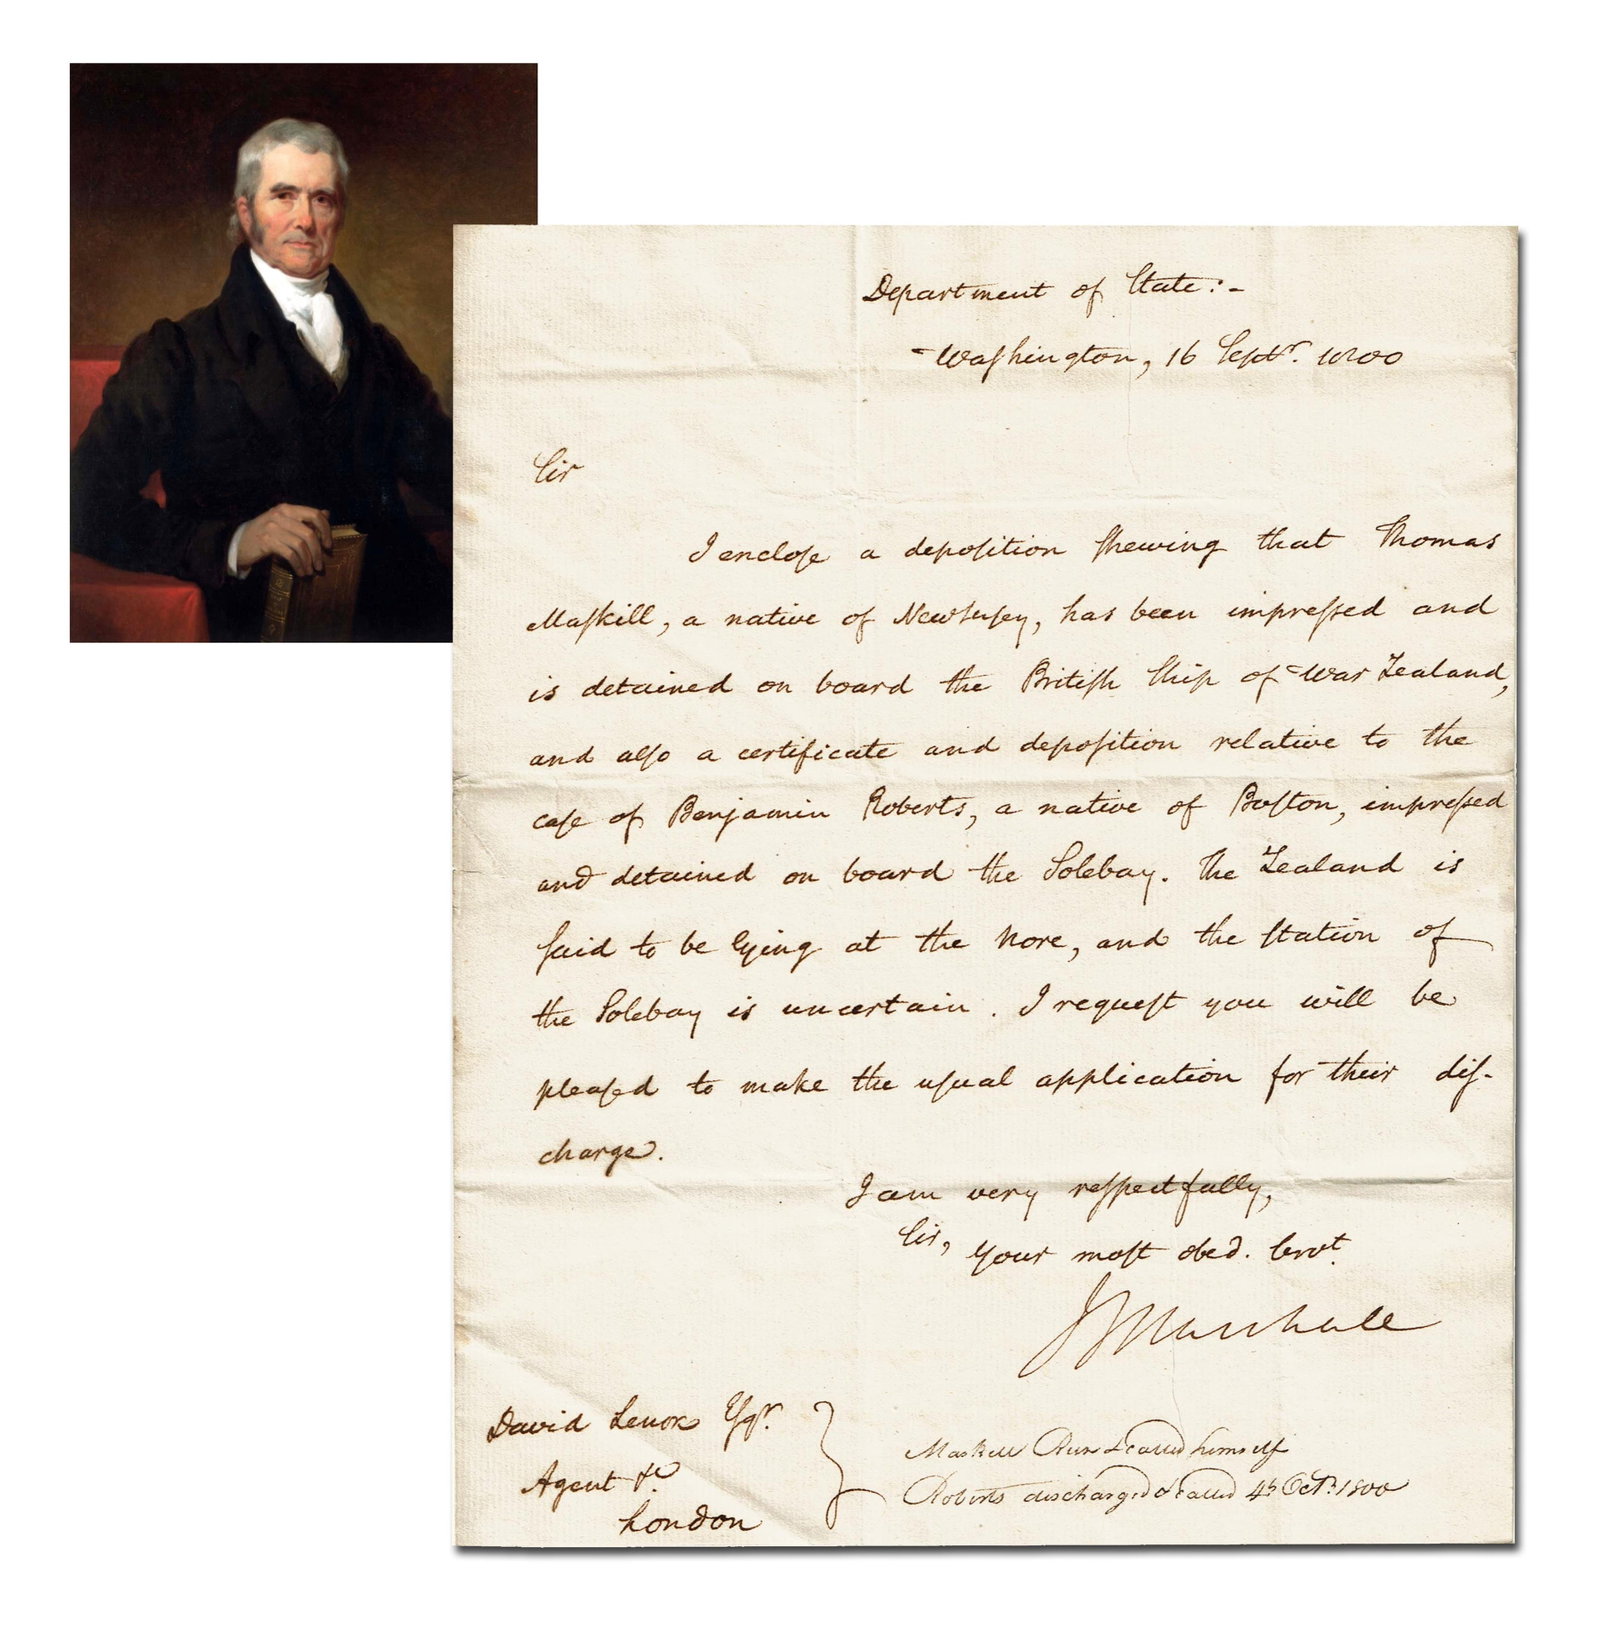 Department of State:-
Washington, 16 Septr. 1800
Sir
I enclose a deposition shewing that Thomas
Maskill, a native of New Jersey, has been impressed and
is detained on board the British Ship of War Zealand,
and also a certificate and deposition relative to the
case of Benjamin Roberts, a native of Boston, impressed
and detained on board the Solebay. The Zealand is
said to be lying at the Nore, and the station of
the Solebay is uncertain. I request you will be
pleased to make the usual application for their dis-
charge.
I am very respectfully,
Sir,
Your most obed. Servt.
J Marshall
David Lenox Esqr.
Agent &c
London
Maskill Run & called himself
Roberts discharged & called 4th Octr. 1800